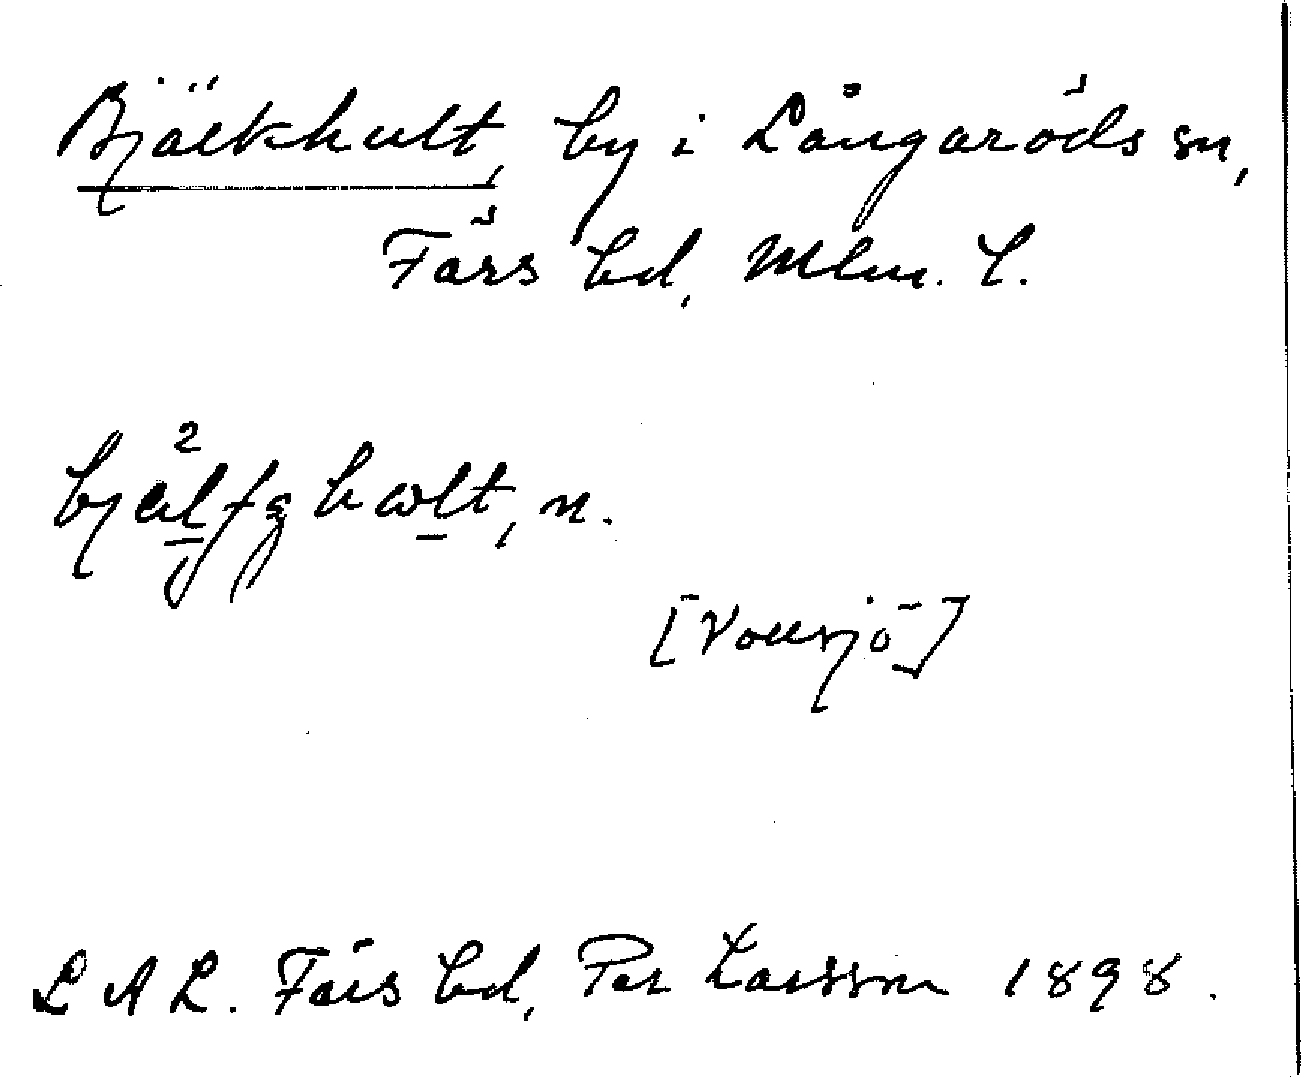 Bjälkhult, by i Långaröds sn,
Färs hd, Mlm. l.
n.
[Vollsjö]
L A L. Färs hd, Per Larsson 1898.